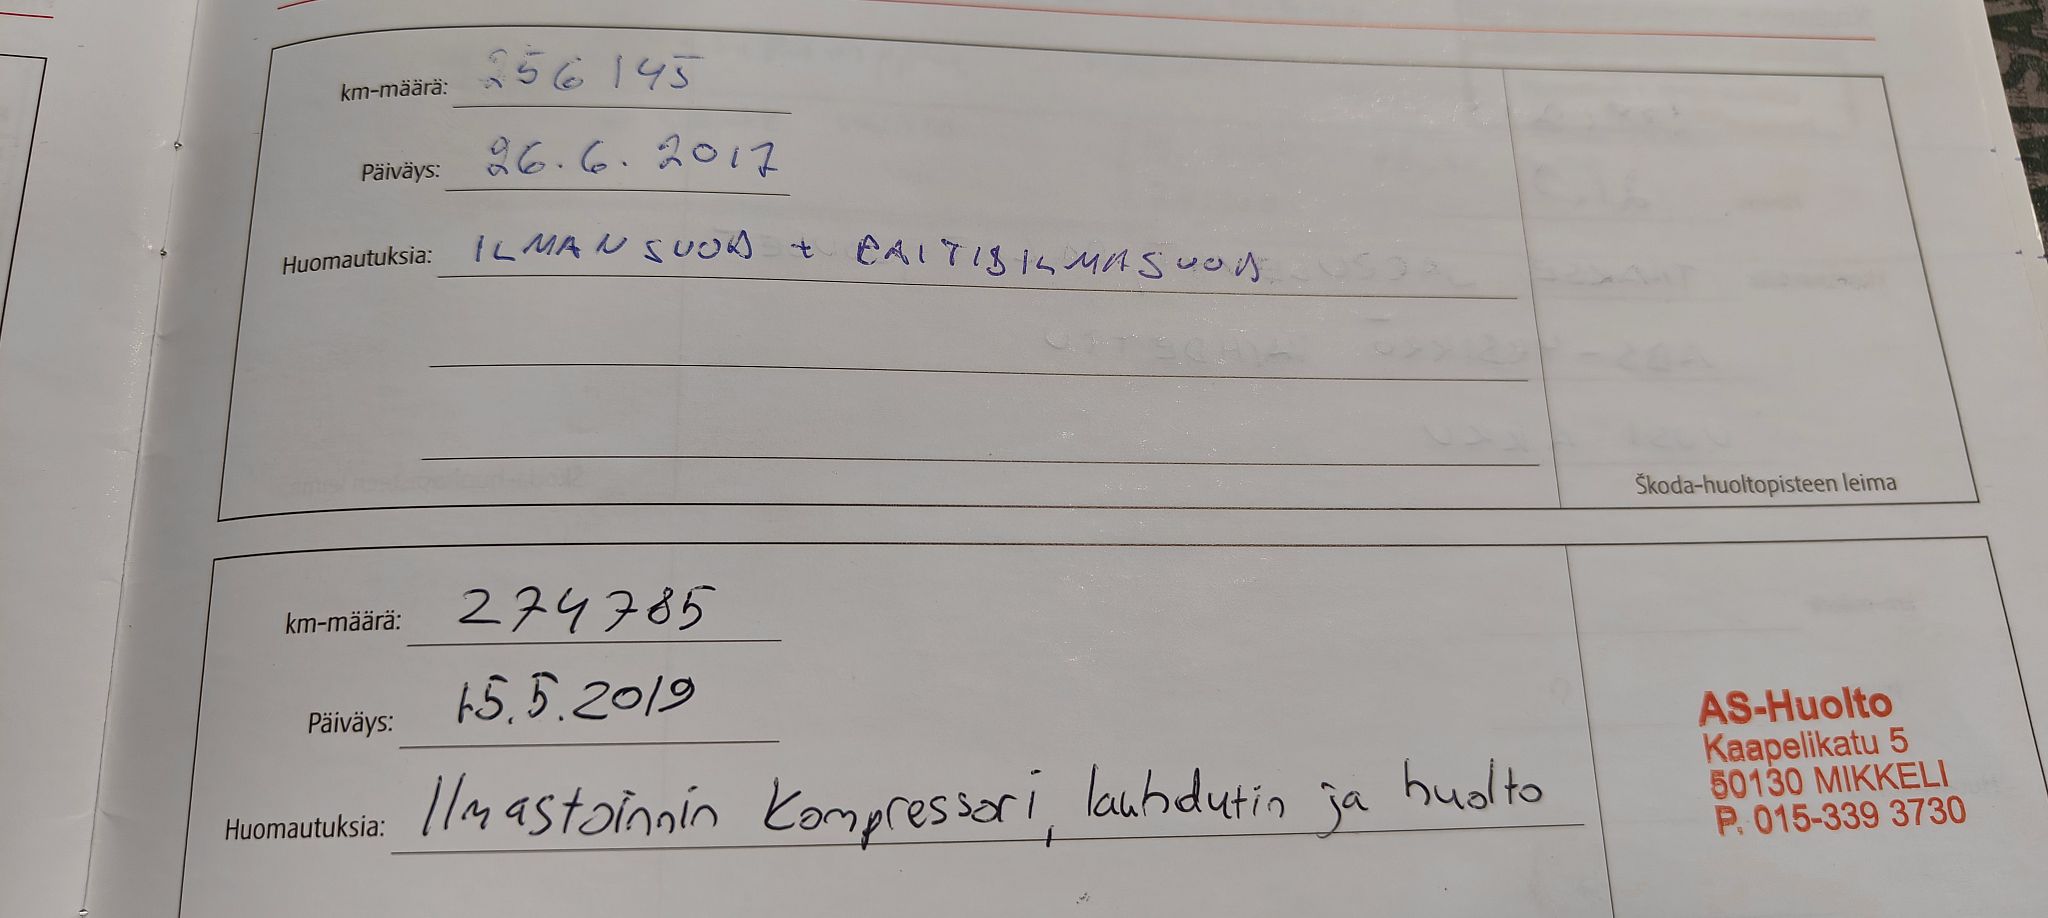 km-määrä: 256 145
Päiväys: 26.6.2017
Huomautuksia: ILMANSUOD + RAITISILMASUOD
Škoda-huoltopisteen leima
km-määrä: 274785
Päiväys: 15.5.2019
Huomautuksia: Ilmastoinnin kompressori, lauhdutin ja huolto
AS-Huolto
Kaapelikatu 5
50130 MIKKELI
P. 015-339 3730